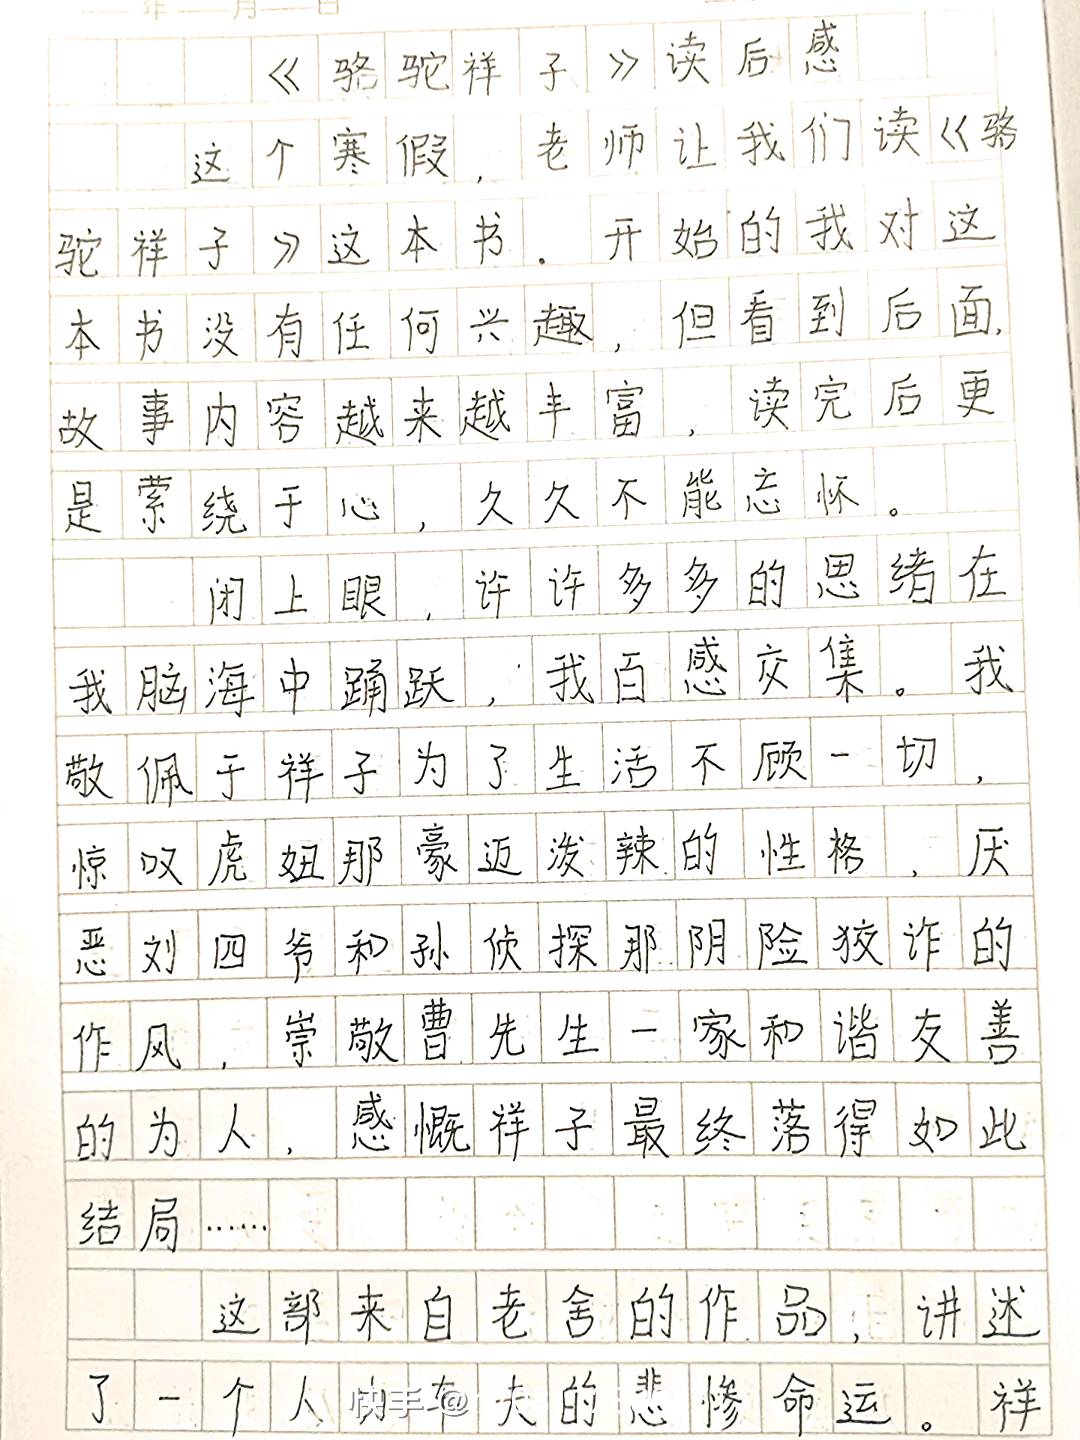 年 月 日
《骆驼祥子》读后感
这个寒假，老师让我们读《骆
驼祥子》这本书．开始的我对这
本书没有任何兴趣，但看到后面，
故事内容越来越丰富，读完后更
是萦绕于心，久久不能忘怀。
闭上眼，许许多多的思绪在
我脑海中踊跃，我百感交集。我
敬佩于祥子为了生活不顾一切，
惊叹虎妞那豪迈泼辣的性格，厌
恶刘四爷和孙侦探那阴险狡诈的
作风，崇敬曹先生一家和谐友善
的为人，感慨祥子最终落得如此
结局……
这部来自老舍的作品，讲述
了一个人力车夫的悲惨命运。祥
快手@